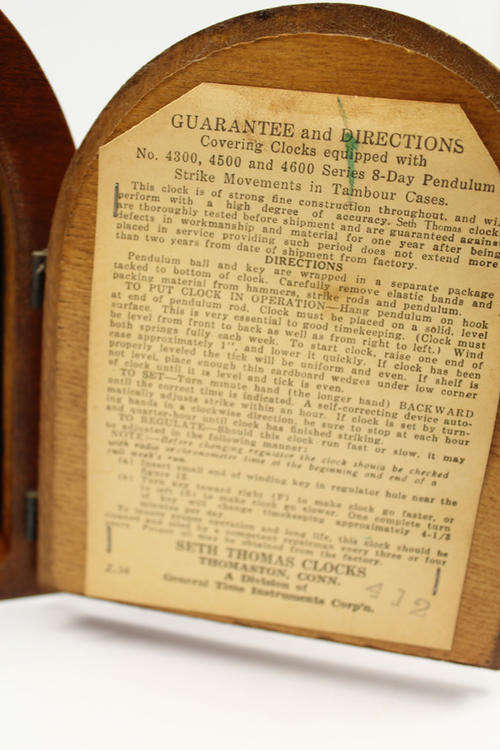 GUARANTEE and DIRECTIONS
Covering Clocks equipped with
No. 4300, 4500 and 4600 Series 8-Day Pendulum
Strike Movements in Tambour Cases.
This clock is of strong fine construction throughout, and will
perform with a high degree of accuracy. Seth Thomas clocks
are thoroughly tested before shipment and are guaranteed against
defects in workmanship and material for one year after being
placed in service providing such period does not extend more
than two years from date of shipment from factory.
DIRECTIONS
Pendulum ball and key are wrapped in a separate package
tacked to bottom of clock. Carefully remove elastic bands and
packing material from hammers, strike rods and pendulum.
TO PUT CLOCK IN OPERATION—Hang pendulum on hook
at end of pendulum rod. Clock must be placed on a solid, level
surface. This is very essential to good timekeeping. (Clock must
be level from front to back as well as from right to left.) Wind
both springs fully each week. To start clock, raise one end of
case approximately 1", and lower it quickly. If clock has been
properly leveled the tick will be uniform and even. If shelf is
not level, place enough thin cardboard wedges under low corner
of clock until it is level and tick is even.
TO SET—Turn minute hand (the longer hand) BACKWARD
until the correct time is indicated. A self-correcting device auto-
matically adjusts strike within an hour. If clock is set by turn-
ing hands in a clockwise direction, be sure to stop at each hour
and quarter-hour until clock has finished striking.
TO REGULATE—Should this clock run fast or slow, it may
be adjusted in the following manner:
NOTE:—Before changing regulator the clock should be checked
with radio or chronometer time at the beginning and end of a
full week's run.
(a) Insert small end of winding key in regulator hole near the
figure 12.
(b) Turn key toward right (F) to make clock go faster, or
to left (S) to make clock go slower. One complete turn
of key will change timekeeping approximately 4-1/2
minutes per day.
To insure proper operation and long life, this clock should be
cleaned and oiled by a competent repairman every three or four
years. Proper oil may be obtained from the factory.
SETH THOMAS CLOCKS
THOMASTON, CONN.
A Division of
General Time Instruments Corp'n.
412